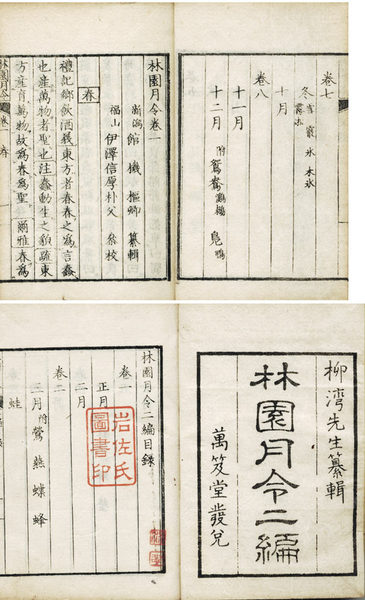 卷七
冬 雪 霰 氷 木氷
霧凇
十月
卷八
十一月
十二月 附鴛鴦 鸂鶒 鳧 鴨
林園月令卷一
新潟 館 機 樞卿 纂輯
福山 伊澤信厚朴父 參校
春
禮記鄉飲酒義東方者春春之爲言蠢
也産萬物者聖也注蠢動生之貌疏東
方産育萬物故爲春爲聖 爾雅春爲
林園月令 卷一 春
柳湾先生纂輯
林園月令二編
萬笈堂發兌
林園月令二編目錄
卷一
正月
二月
卷二
三月 附鶯 燕 蝶 蜂
蛙
岩佐氏
圖書印